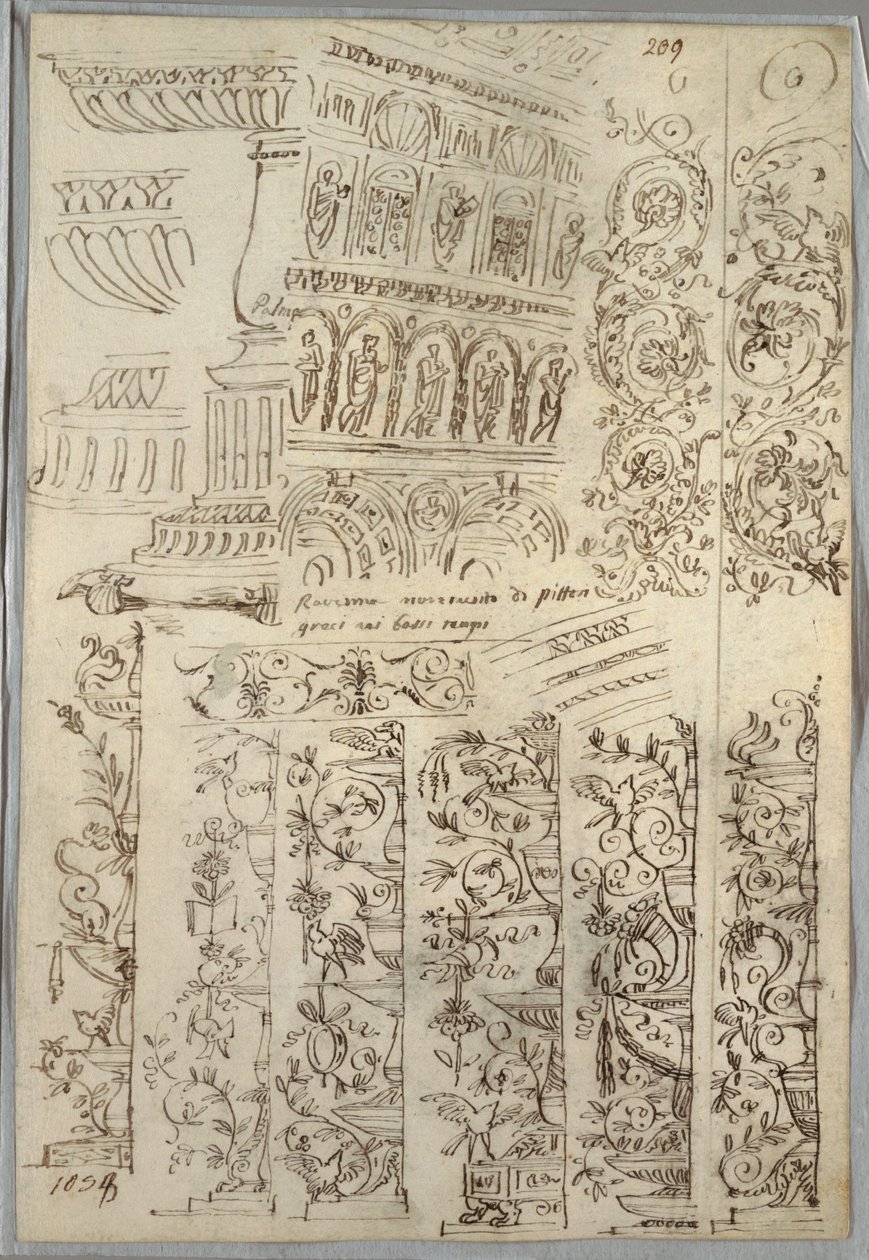 209
Palme
Ravenna di pitteri
greci nei bassi tempi
1054